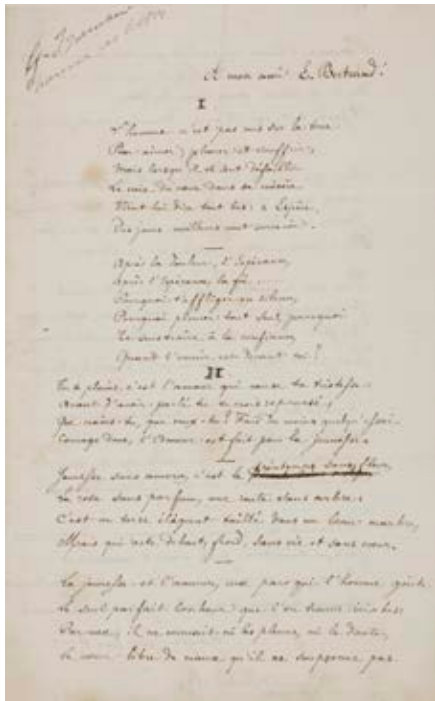 A mon ami E. Bertrand.
I
L'homme n'est pas mis sur la terre
Pour aimer, pleurer et souffrir;
Mais lorsqu'il se sent défaillir
La voix du cœur dans sa misère
Vient lui dire tout bas: « Espère,
Des jours meilleurs vont
Après la douleur, l'Espérance,
Après l'Espérance, la foi
Pourquoi t'affliger en silence,
Pourquoi pleurer tout seul, pourquoi
Te soustraire à la confiance,
Quand l'avenir est devant toi?
II
Tu te plains, c'est l'amour qui cause ta tristesse.
Avant d'avoir parlé tu te crois repoussé,
Que crains-tu, que veux-tu? Fais du moins quelque chose.
Courage donc, l'Amour est fait pour la jeunesse.
Jeunesse sans amour, c'est le printemps sans fleur,
La rose sans parfum, une sans arbre;
C'est un torse élégant taillé dans un beau marbre,
Mais qui reste debout, froid, sans vie et sans cœur.
La jeunesse et l'amour, pour qui l'homme goûte
Le seul parfait bonheur que l'on trouve ici bas;
Par eux, il ne connait ni les pleurs, ni le doute,
Le cœur libre de maux qu'il ne soupçonne pas